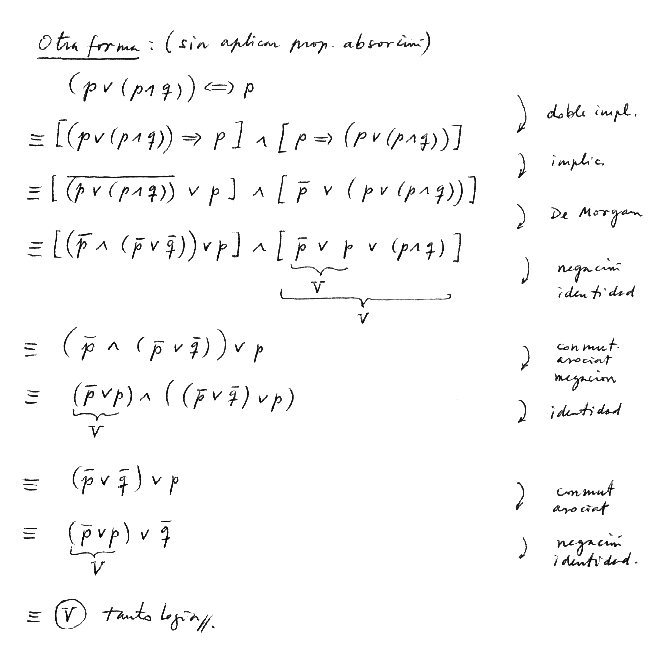 Otra forma : (sin aplicar prop. absorción)
(p ∨ (p ∧ q)) ⇔ p
doble impl.
≡ [(p ∨ (p ∧ q)) ⇒ p] ∧ [p ⇒ (p ∨ (p ∧ q))]
implic.
≡ [\overline{(p ∨ (p ∧ q))} ∨ p] ∧ [p̄ ∨ (p ∨ (p ∧ q))]
De Morgan
≡ [(p̄ ∧ (p̄ ∨ q̄)) ∨ p] ∧ [p̄ ∨ p ∨ (p ∧ q)]
V
V
negación
identidad
≡ (p̄ ∧ (p̄ ∨ q̄)) ∨ p
conmut.
asociat
negacion
≡ (p̄ ∨ p) ∧ ((p̄ ∨ q̄) ∨ p)
V
identidad
≡ (p̄ ∨ q̄) ∨ p
conmut
asociat
≡ (p̄ ∨ p) ∨ q̄
V
negación
identidad.
≡ V tautología//.